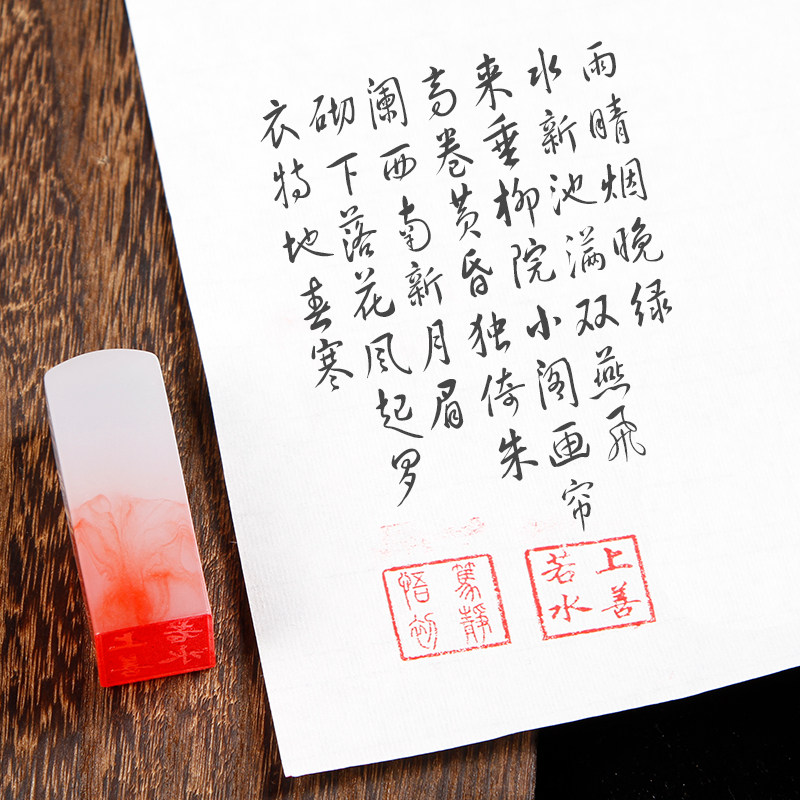 雨晴烟晚绿
水新池满双燕飞
来垂柳院小阁画帘
高卷黄昏独倚朱
阑西南新月眉
砌下落花风起罗
衣特地春寒
上善
若水
篤靜
悟初